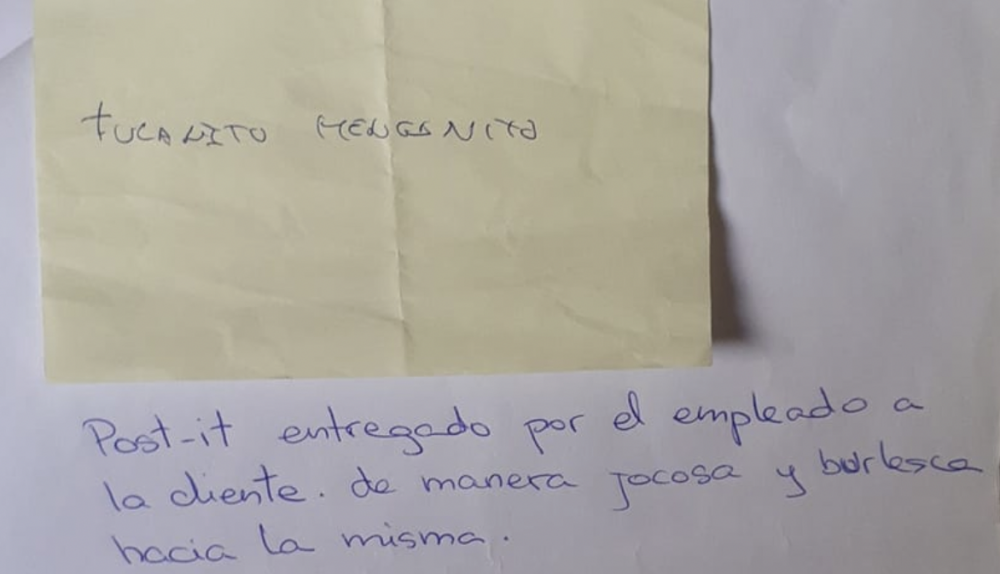 tUCANITO MENGANITO
Post-it entregado por el empleado a
la cliente. de manera jocosa y burlesca
hacia la misma.